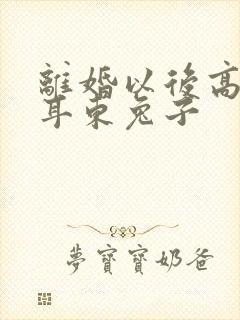 離婚以後高
耳東兔子
夢寶寶奶爸